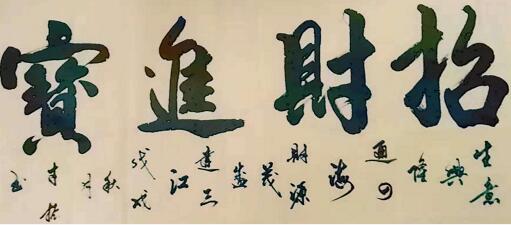 招財進寶
生意興隆通四海
財源茂盛達三江
戊戌秋月